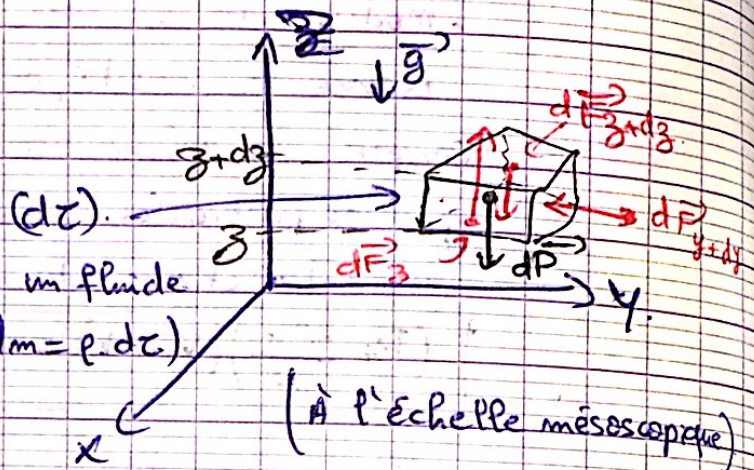 Z
g⃗
dF⃗z+dz
z+dz
(dτ).
dF⃗y+dy
z
dF⃗z
dP⃗
un fluide
Y.
dm = ρ.dτ)
X
(À l'échelle mésoscopique)